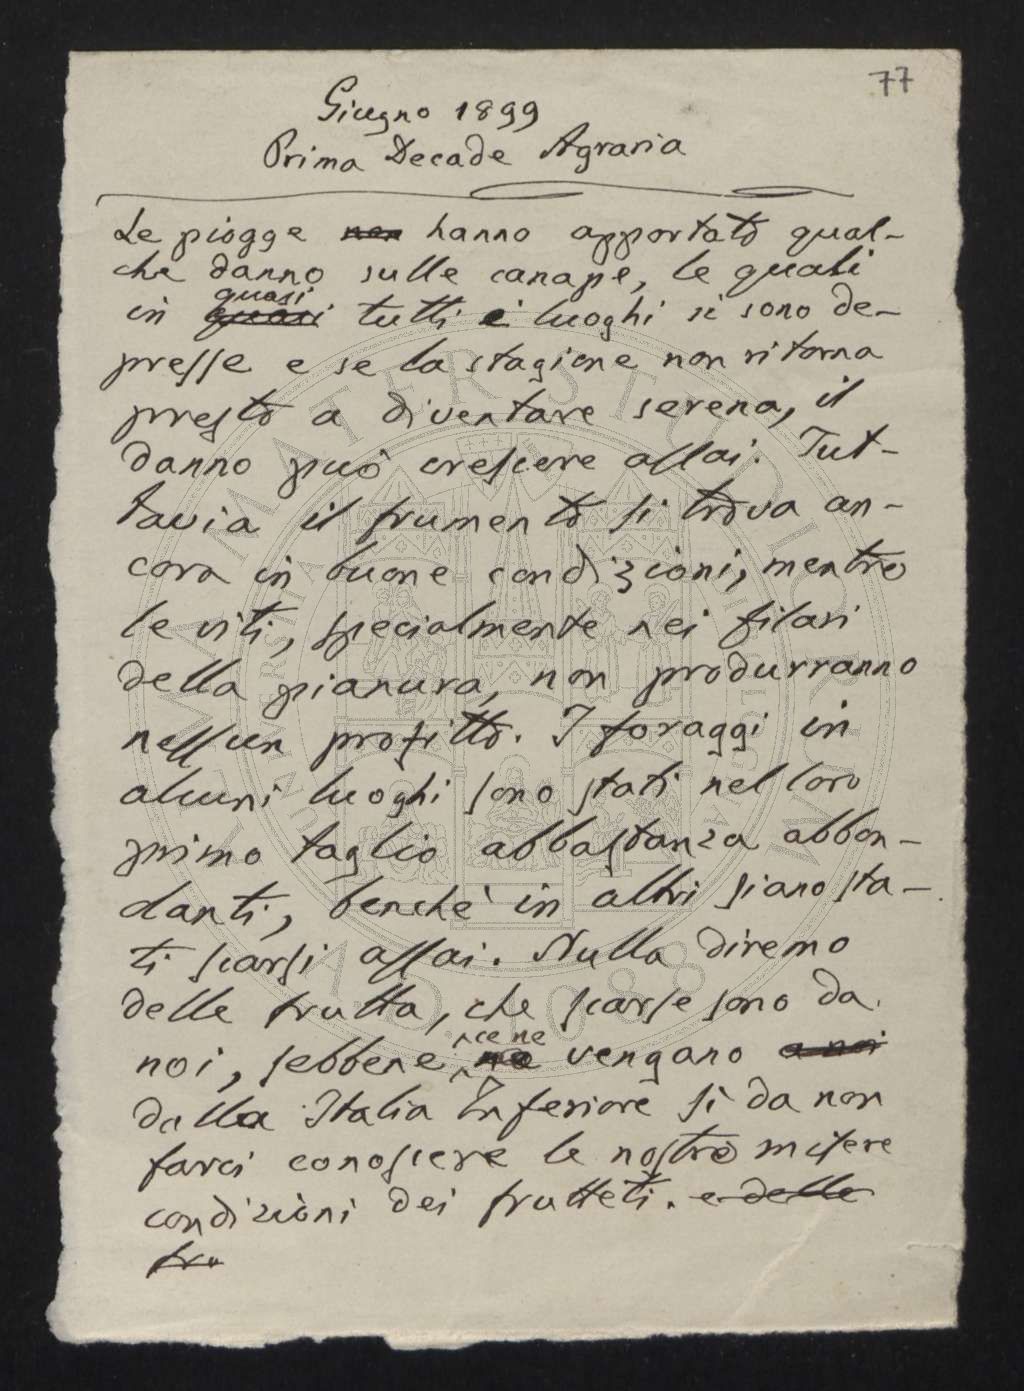 77
Giugno 1899
Prima Decade Agraria
Le piogge non hanno apportato qual-
che danno sulle canape, le quali
quasi
in quasi tutti i luoghi si sono de-
presse e se la stagione non ritorna
presto a diventare serena, il
danno può crescere assai. Tut-
tavia il frumento si trova an-
cora in buone condizioni, mentre
le viti, specialmente nei filari
della pianura, non produrranno
nessun profitto. I foraggi in
alcuni luoghi sono stati nel loro
primo taglio abbastanza abbon-
danti, benchè in altri siano sta-
ti scarsi assai. Nulla diremo
delle frutta, che scarse sono da
ce ne
noi, sebbene ne vengano a noi
dalla Italia Inferiore sì da non
farci conoscere le nostre misere
condizioni dei frutteti. e delle
fru
ALMA MATER STUDIORUM
A.D. 1088